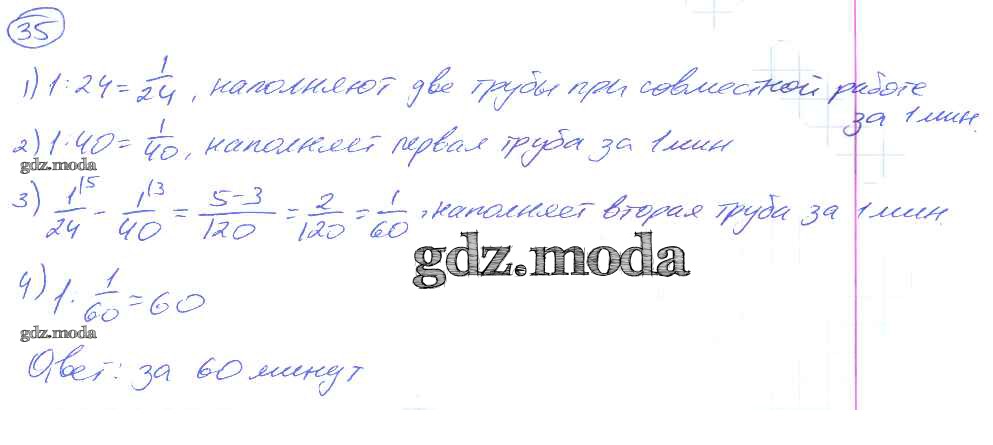 35
1) 1:24 = 1/24, наполняют две трубы при совместной работе
за 1 мин.
2) 1:40 = 1/40, наполняет первая труба за 1 мин
gdz.moda
3) 1/24 |5 - 1/40 |3 = 5-3/120 = 2/120 = 1/60, наполняет вторая труба за 1 мин.
gdz.moda
4) 1: 1/60 = 60
gdz.moda
Ответ: за 60 минут